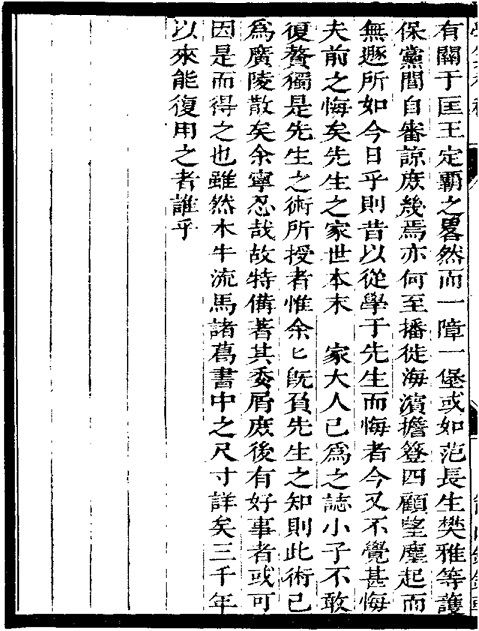 有關于匡王定霸之畧然而一障一堡或如范長生樊雅等護
保黨閭自審諒庶幾焉亦何至播徙海濱擔簦四顧望塵起而
無遯所如今日乎則昔以從學于先生而悔者今又不覺甚悔
夫前之悔矣先生之家世本末　家大人已為之誌小子不敢
復贅獨是先生之術所授者惟余匕旣負先生之知則此術已
為廣陵散矣余寧忍哉故特備著其委屑庶後有好事者或可
因是而得之也雖然木牛流馬諸葛書中之尺寸詳矣三千年
以來能復用之者誰乎